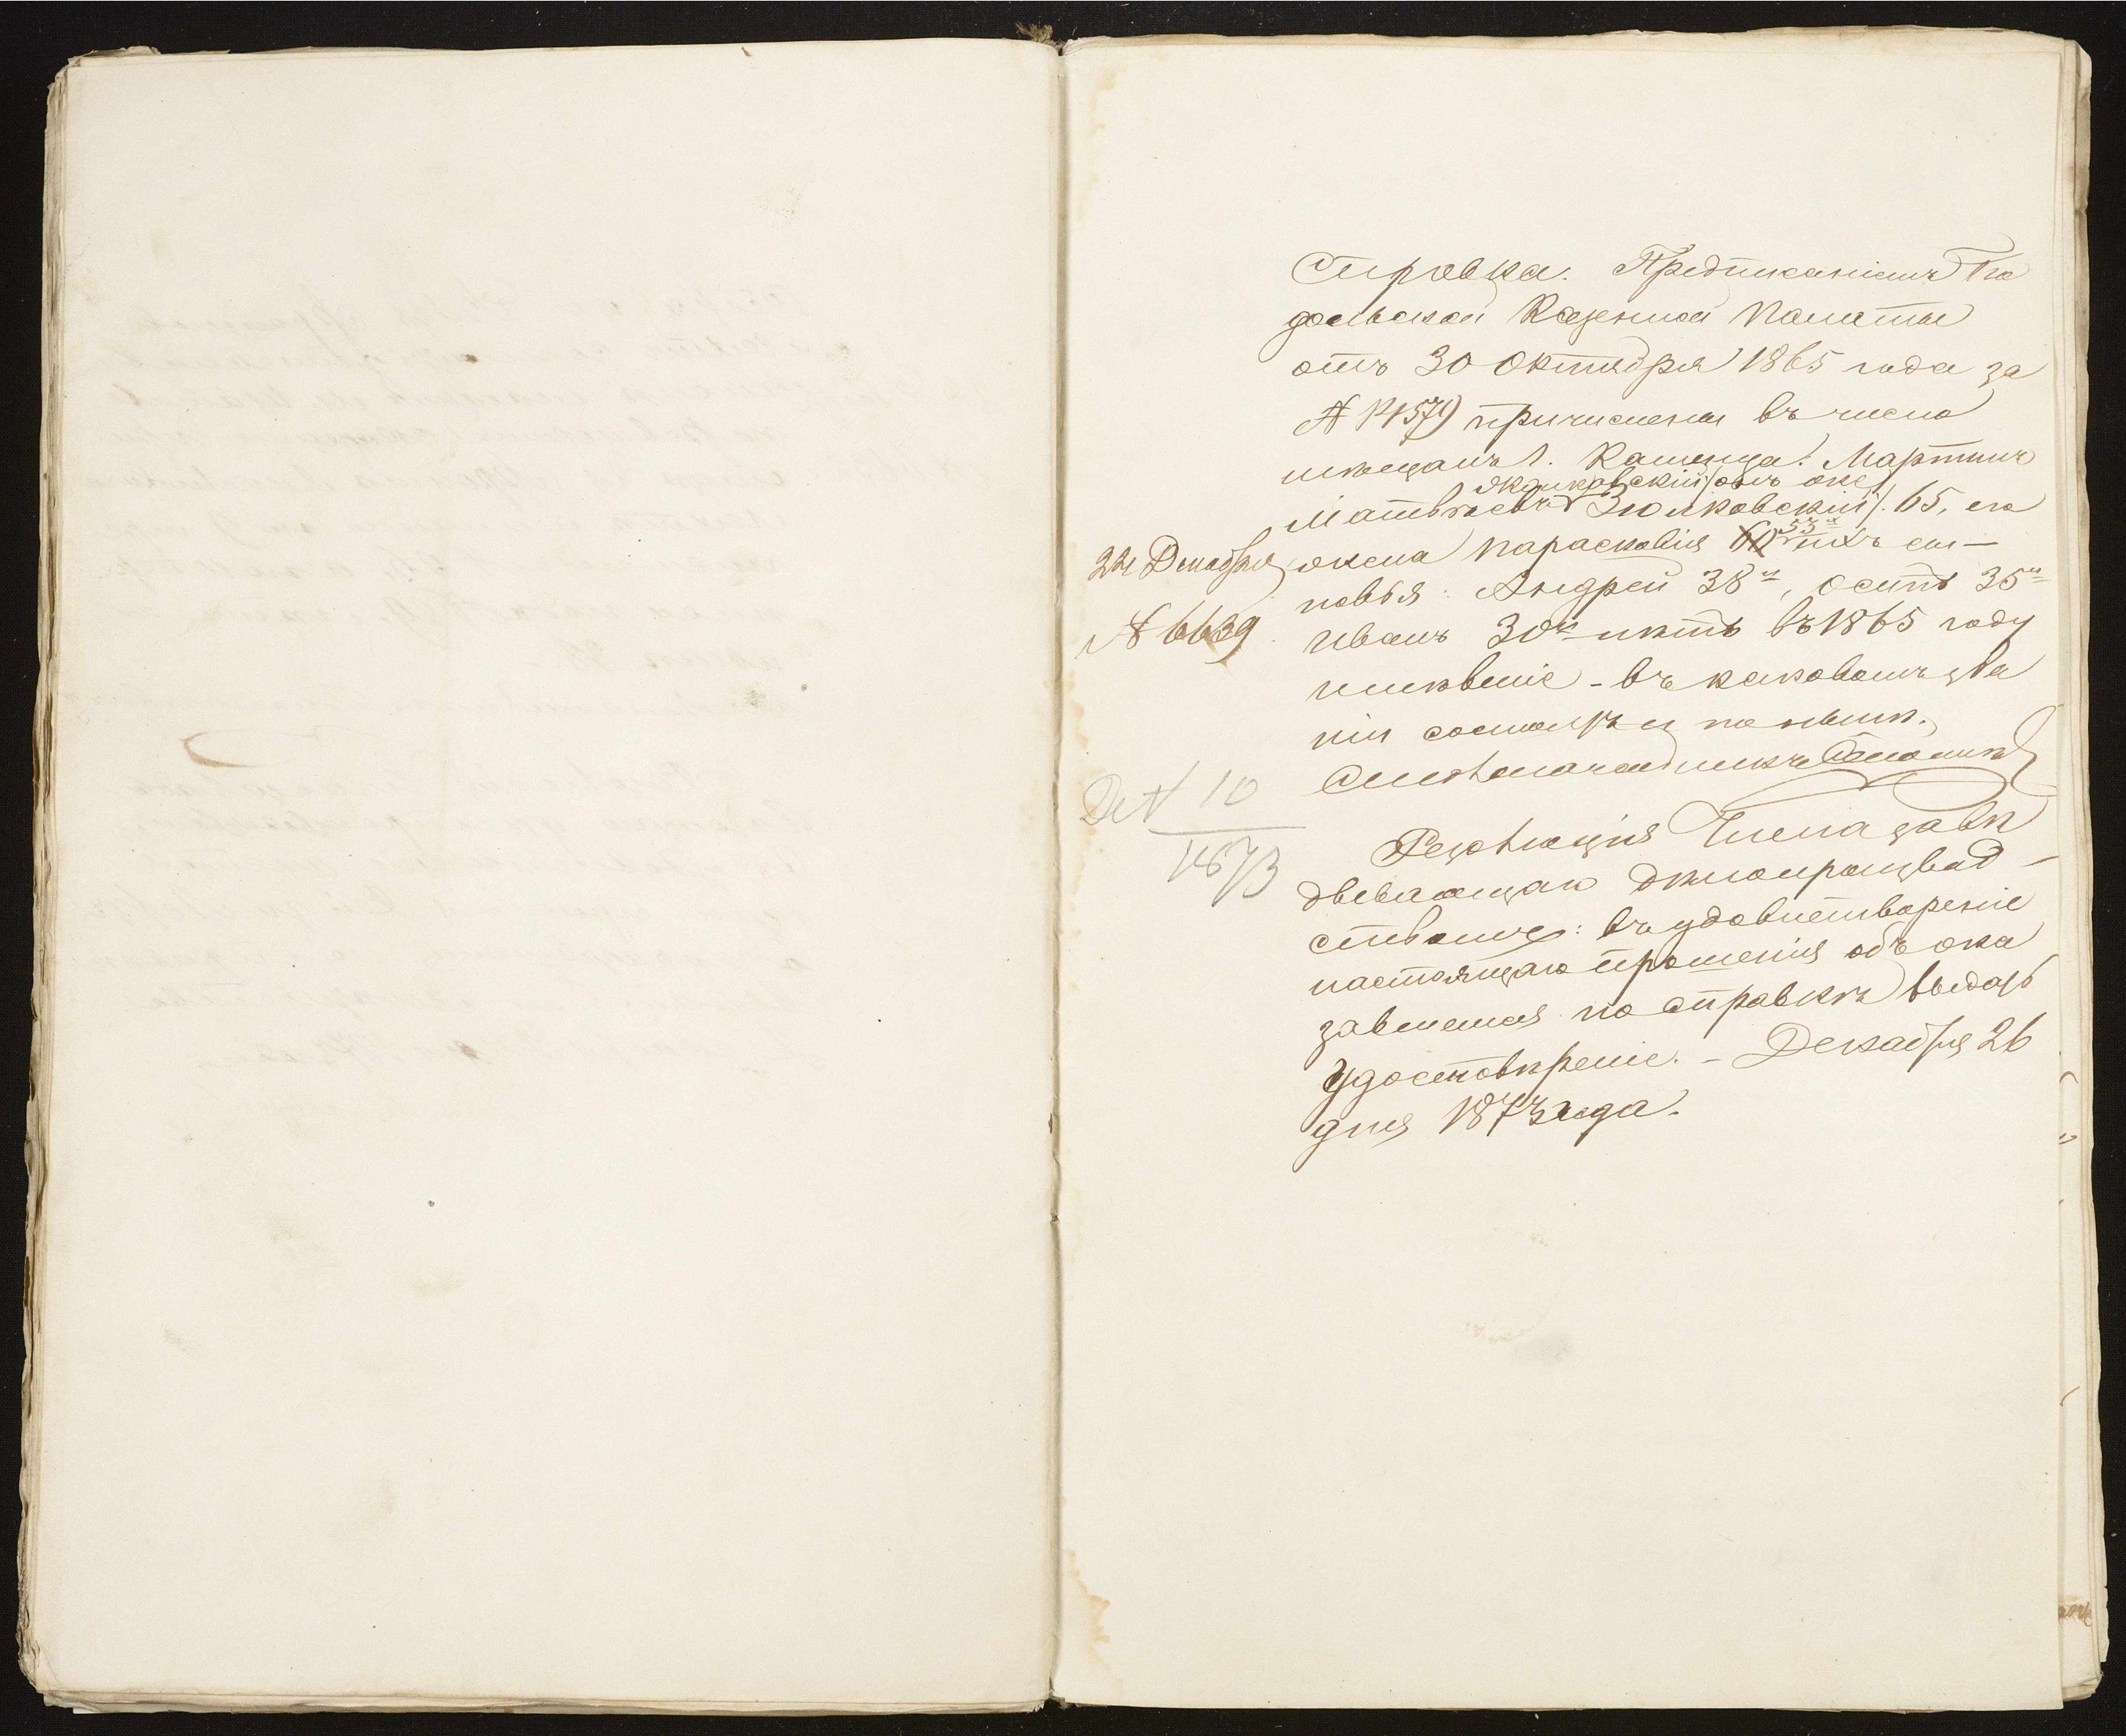 Справка. Предписаніемъ По
дольской Казенной Палаты
отъ 30 Октября 1865 года за
№ 14579 причислены въ число
мѣщанъ г. Каменца: Мартинъ
Жолковскій /онъ же/
Матвѣевъ Зюлковскій /. 65, его
жена Парасковія 60 53 и ихъ сы-
новья: Андрей 38и, Осипъ 35и
Иванъ 30и лѣтъ въ 1865 году
имѣвшіе - въ каковомъ зва
ніи состоятъ и понынѣ.
Столоначальникъ
22 Декабря
№ 6639
Д № 10
1873
Резолюція Члена завѣ
дывающаго дѣлопроизвод-
ствомъ: въ удовлетвореніе
настоящаго прошенія объ ока
завшемся по справкѣ выдать
удостовѣреніе. - Декабря 26
дня 1873 года.